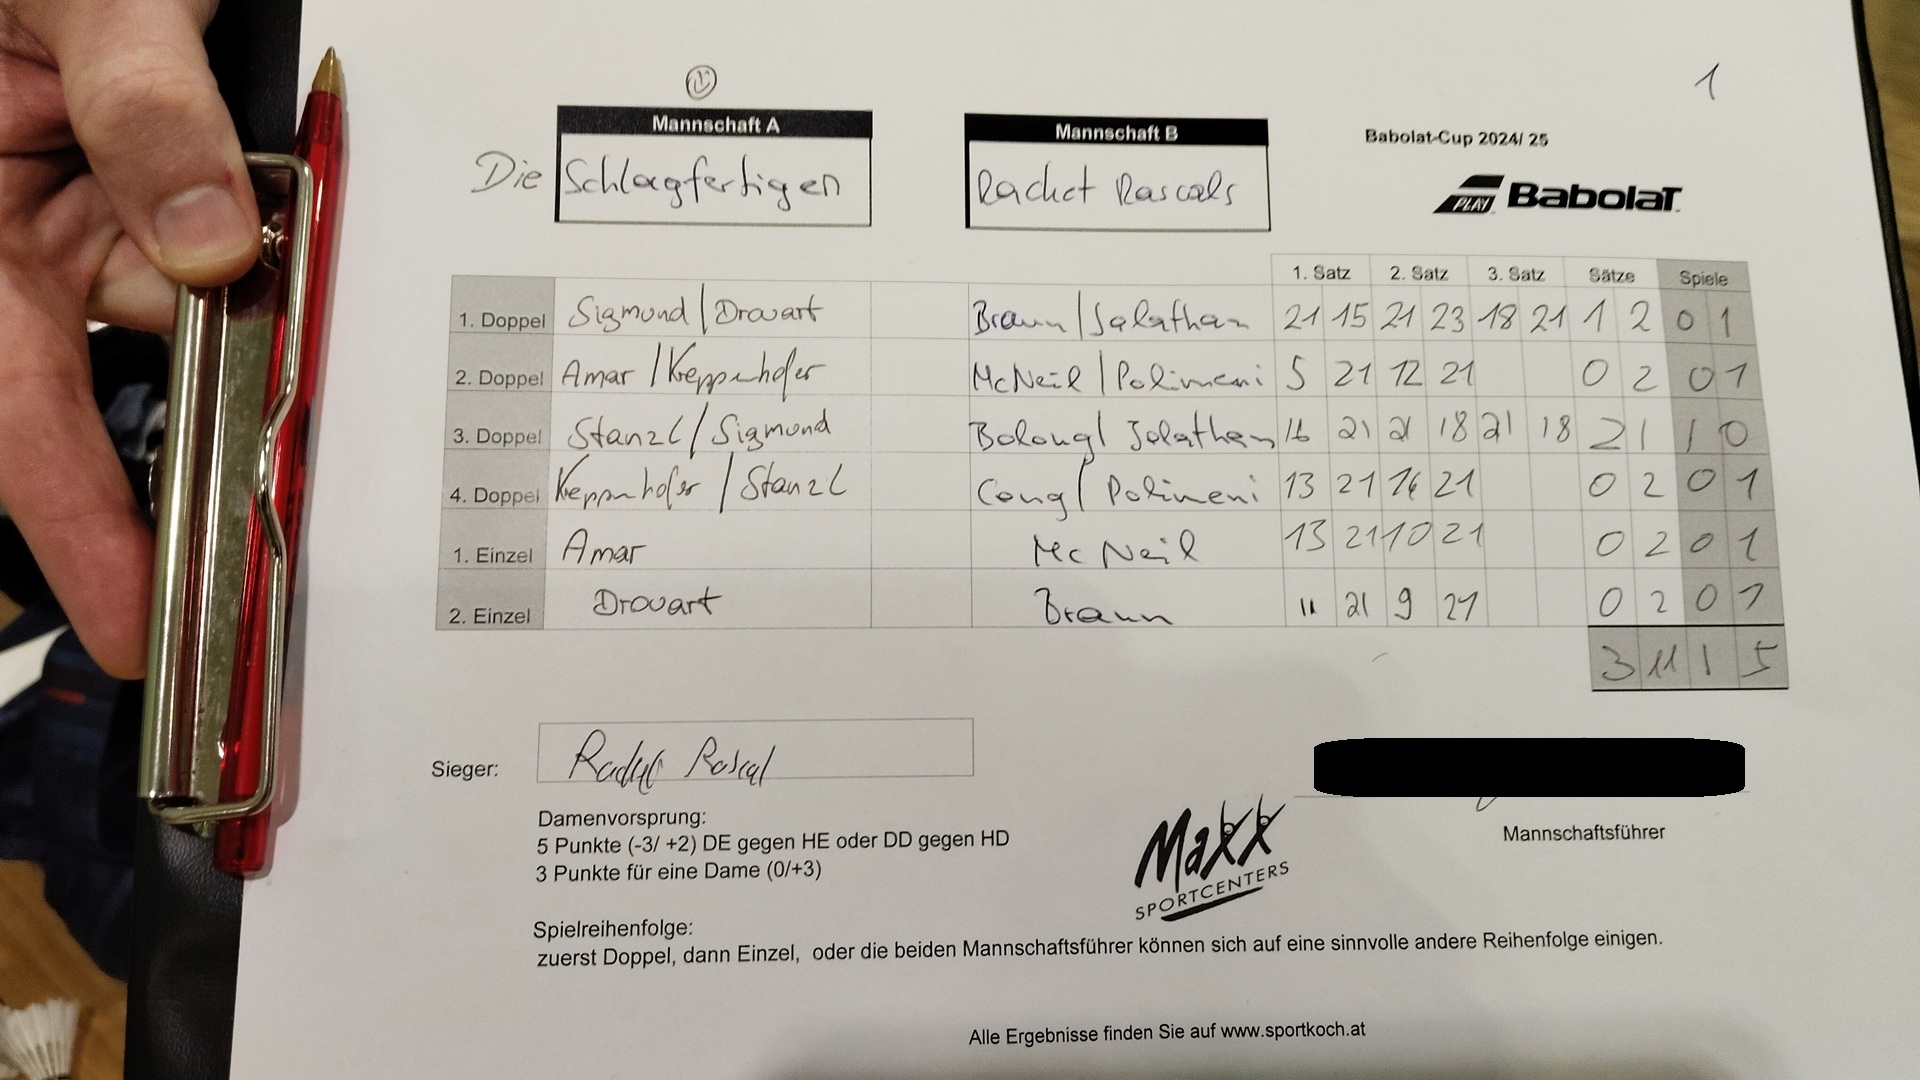 1
Mannschaft A
Mannschaft B
Babolat-Cup 2024/ 25
Die Schlagfertigen
Racket Rascals
PLAY BABOLAT
1. Satz 2. Satz 3. Satz Sätze Spiele
1. Doppel Sigmund / Drouart Braun / Jalathan 21 15 21 23 18 21 1 2 0 1
2. Doppel Amar / Keppnhofer McNeil / Polimeni 5 21 12 21 0 2 0 1
3. Doppel Stanzl / Sigmund Bolong / Jolathan 16 21 21 18 21 18 2 1 1 0
4. Doppel Keppnhofer / Stanzl Cong / Polimeni 13 21 16 21 0 2 0 1
1. Einzel Amar Mc Neil 13 21 10 21 0 2 0 1
2. Einzel Drouart Braun 11 21 9 21 0 2 0 1
3 11 1 5
Sieger: Racket Rascal
Damenvorsprung:
5 Punkte (-3/ +2) DE gegen HE oder DD gegen HD
3 Punkte für eine Dame (0/+3)
Maxx
SPORTCENTERS
Mannschaftsführer
Spielreihenfolge:
zuerst Doppel, dann Einzel, oder die beiden Mannschaftsführer können sich auf eine sinnvolle andere Reihenfolge einigen.
Alle Ergebnisse finden Sie auf www.sportkoch.at